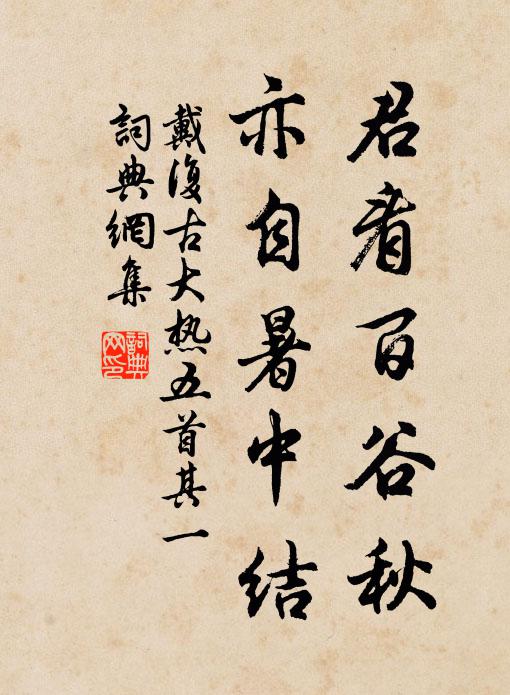 君看百谷秋
亦自暑中结
戴復古大热五首其一
詞典網集
詞典
网印